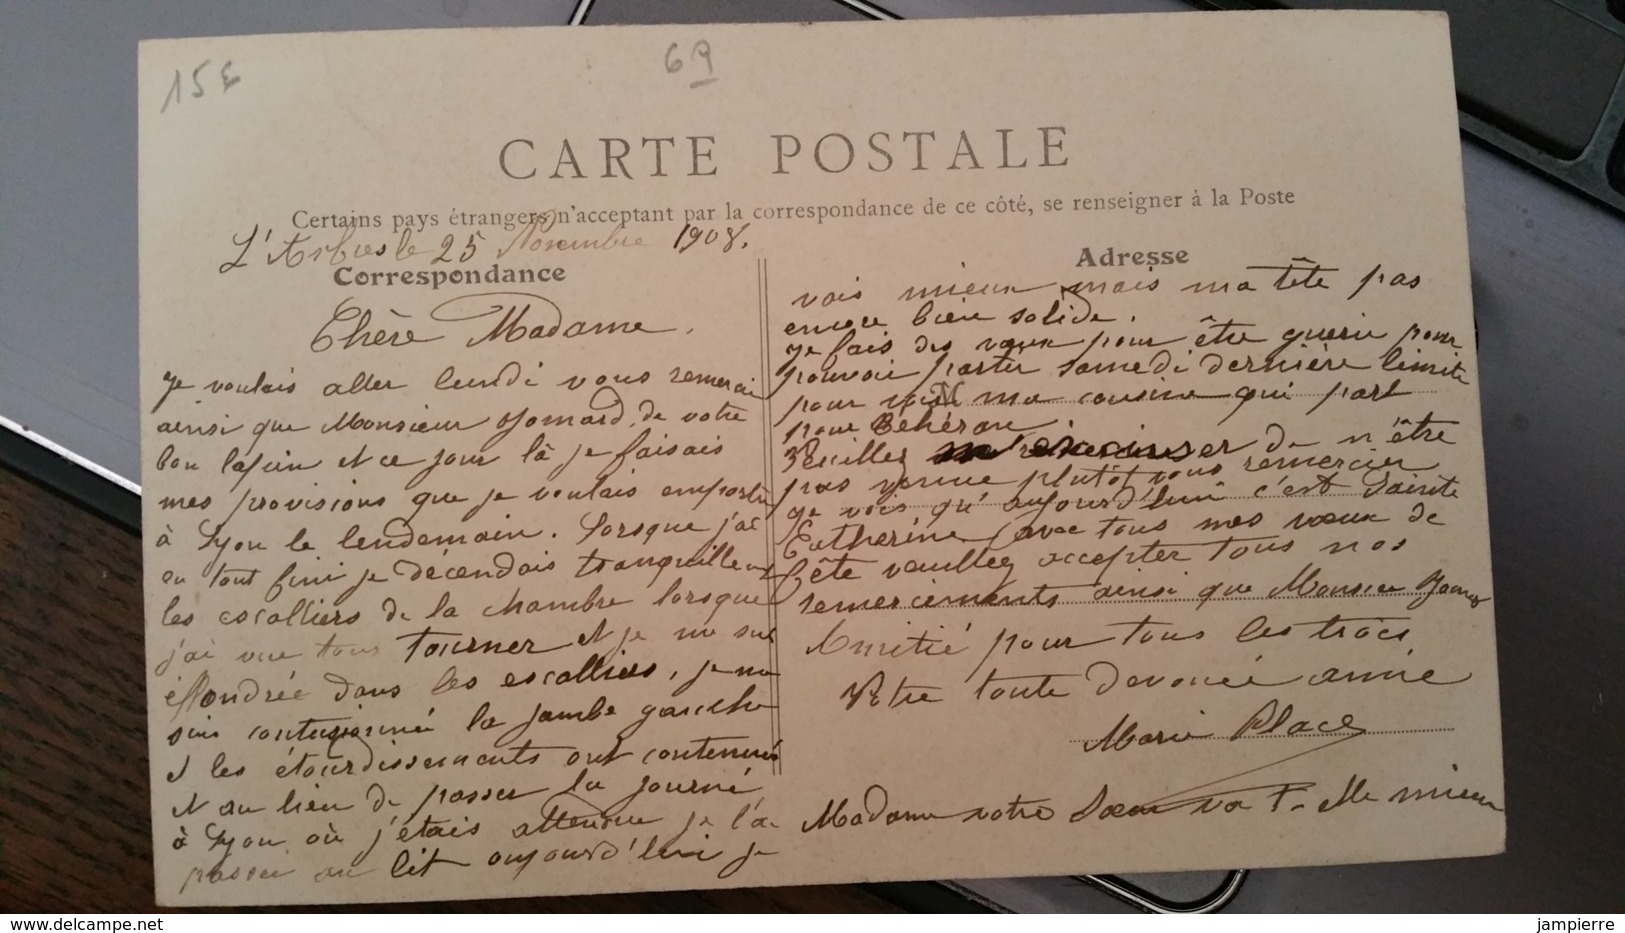 15€
69
CARTE POSTALE
Certains pays étrangers n'acceptant par la correspondance de ce côté, se renseigner à la Poste
L'Arbresle 25 Novembre 1908.
Correspondance
Chère Madame,
Je voulais aller lundi vous remercié
ainsi que Monsieur Jomard, de votre
bon lapin et ce jour là je faisais
mes provisions que je voulais emporter
à Lyon le lendemain. Lorsque j'ai
eu tout fini je décendais tranquillement
les escalliers de la chambre lorsque
j'ai vue tous tourner et je me suis
éffondrée dans les escalliers, je me
suis contusionné la jambe gauche
et les étourdissements ont contenués
et au lieu de passer la journé
à Lyon où j'étais attendue je l'ai
passer au lit aujourd'hui je
Adresse
vais mieux mais ma tête pas
encore bien solide.
je fais des vœux pour être guerie pour
pouvoir partir samedi dernière limite
pour voir ma cousine qui part
pour Téhéran.
Veuillez m'excuser de n'être
pas venue plutôt vous remercier
je vois qu'aujourd'hui c'est Sainte
Catherine, avec tous mes vœux de
fête veuillez accepter tous nos
remerciements ainsi que Monsieur Jomard
Amitié pour tous les trois
Votre toute devouée amie
Marie Place
Madame votre Sœur va t-elle mieux
delcampe.net
jampierre